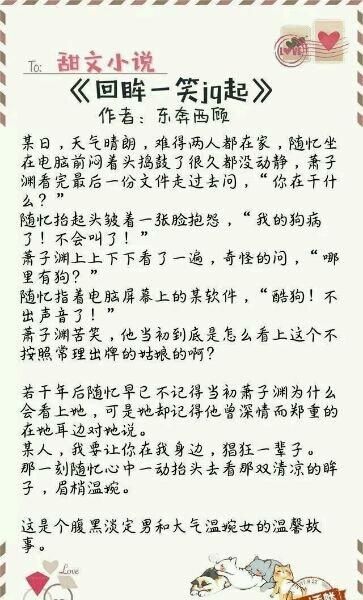 LOVE
To: 甜文小说
《回眸一笑jq起》
作者：东奔西顾
某日，天气晴朗，难得两人都在家，随忆坐
在电脑前闷着头捣鼓了很久都没动静，萧子
渊看完最后一份文件走过去问，“你在干什
么？”
随忆抬起头皱着一张脸抱怨，“我的狗病
了！不会叫了！”
萧子渊上上下下看了一遍，奇怪的问，“哪
里有狗？”
随忆指着电脑屏幕上的某软件，“酷狗！不
出声音了！”
萧子渊苦笑，他当初到底是怎么看上这个不
按照常理出牌的姑娘的啊？
若干年后随忆早已不记得当初萧子渊为什么
会看上她，可是她却记得他曾深情而郑重的
在她耳边对她说。
某人，我要让你在我身边，猖狂一辈子。
那一刻随忆心中一动抬头去看那双清凉的眸
子，眉梢温婉。
这是个腹黑淡定男和大气温婉女的温馨故
事。
Love